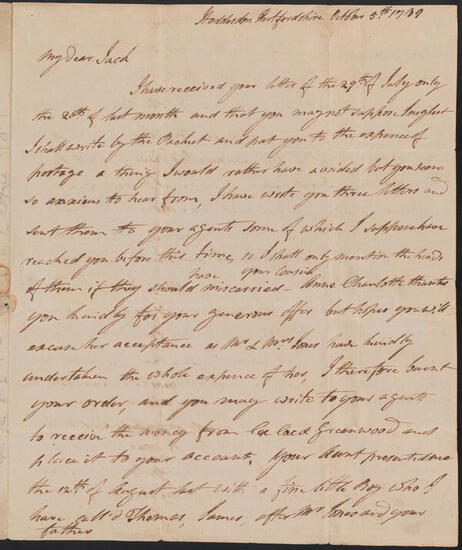 Hoddesdon Hertfordshire October 5th 1789
My dear Jack
I have received your letter of the 29th of July only
the 20th of last month and that you may not suppose I neglect
I shall write by the Packet and put you to the expence of
postage a thing I would rather have avoided but you seem
so anxious to hear from, I have wrote you three letters and
sent them to your agents some of which I suppose have
reached you before this time, so I shall only mention the heads
have your Cousin
of them if they should miscarried – Anne Charlotte thanks
you kindly for your generous offer but hopes you will
excuse her acceptance as Mr & Mrs Jones have kindly
undertaken the whole expence of her, I therefore burnt
your order, and you may write to your agents
to receive the money from Cox Greenwood and
place it to your account. Your Aunt presented me
the 12th of August last with a fine little Boy who I
have call'd Thomas, James, after Mr Jones and your
father